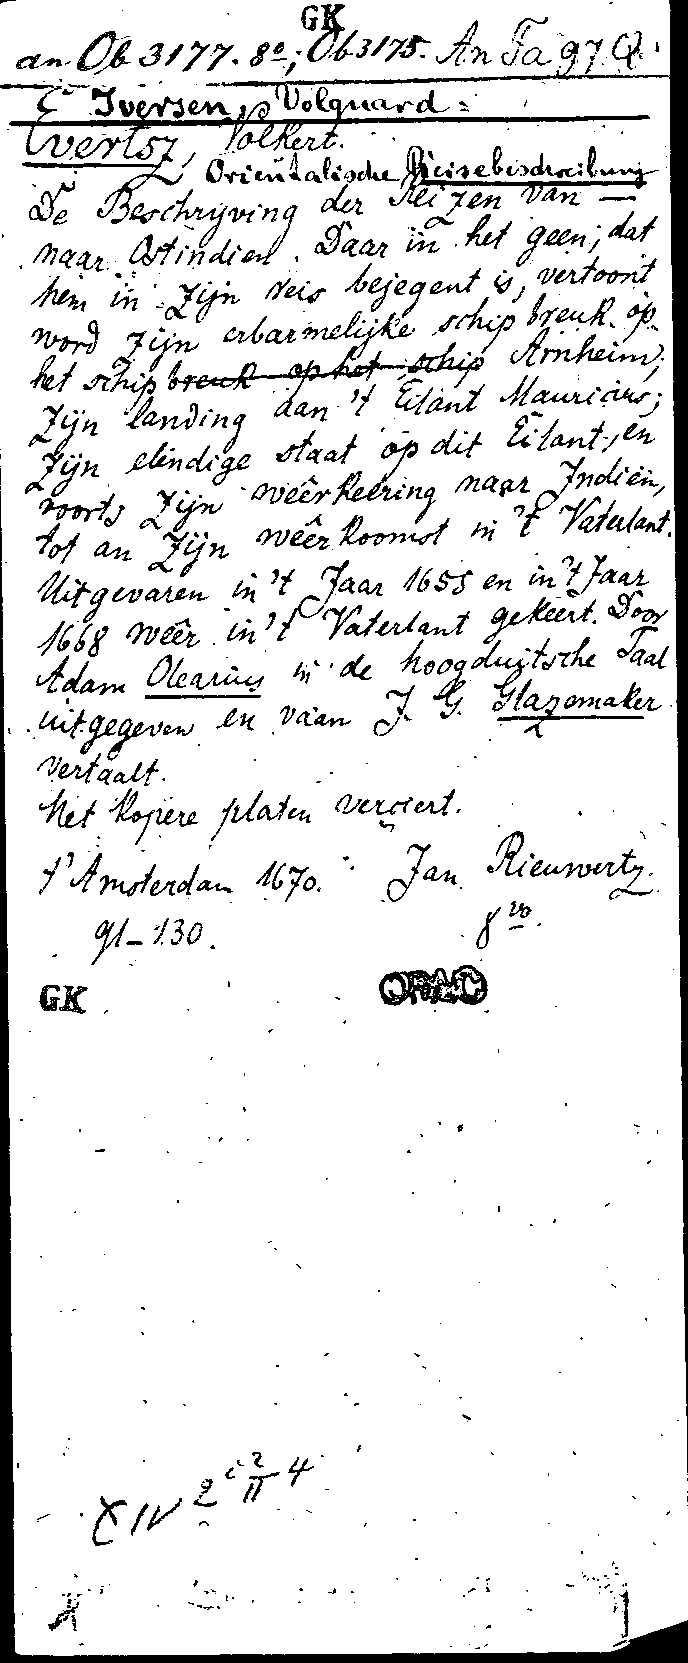 GK
an Ob 3177. 8º; Ob 3175. An Ta 97 Q.
Iversen, Volquard =
Evertsz, Volkert.
Orientalische Reisebeschreibung
De Beschryving der Reizen van —
naar Ostindien. Daar in het geen, dat
hem in zijn reis bejegent is, vertoont
word zijn erbarmelijke schipbreuk op
het schip breuk op het schip Arnheim;
zijn landing aan 't Eilant Mauricius;
zijn elindige staat op dit Eilant, en
voorts zijn wêerkeering naar Indien,
tot an zijn wêerkoomst in 't Vaterlant.
Uitgevaren in 't Jaar 1655 en in 't Jaar
1668 wêer in 't Vaterlant gekeert. Door
Adam Olearius in de hoogduitsche Taal
uitgegeven en vaan J. G. Glazemaker
vertaalt.
Met kopere platen verciert.
t' Amsterdam 1670. Jan Rieuwertz.
gl-130. 8vo.
GK
XIV 2